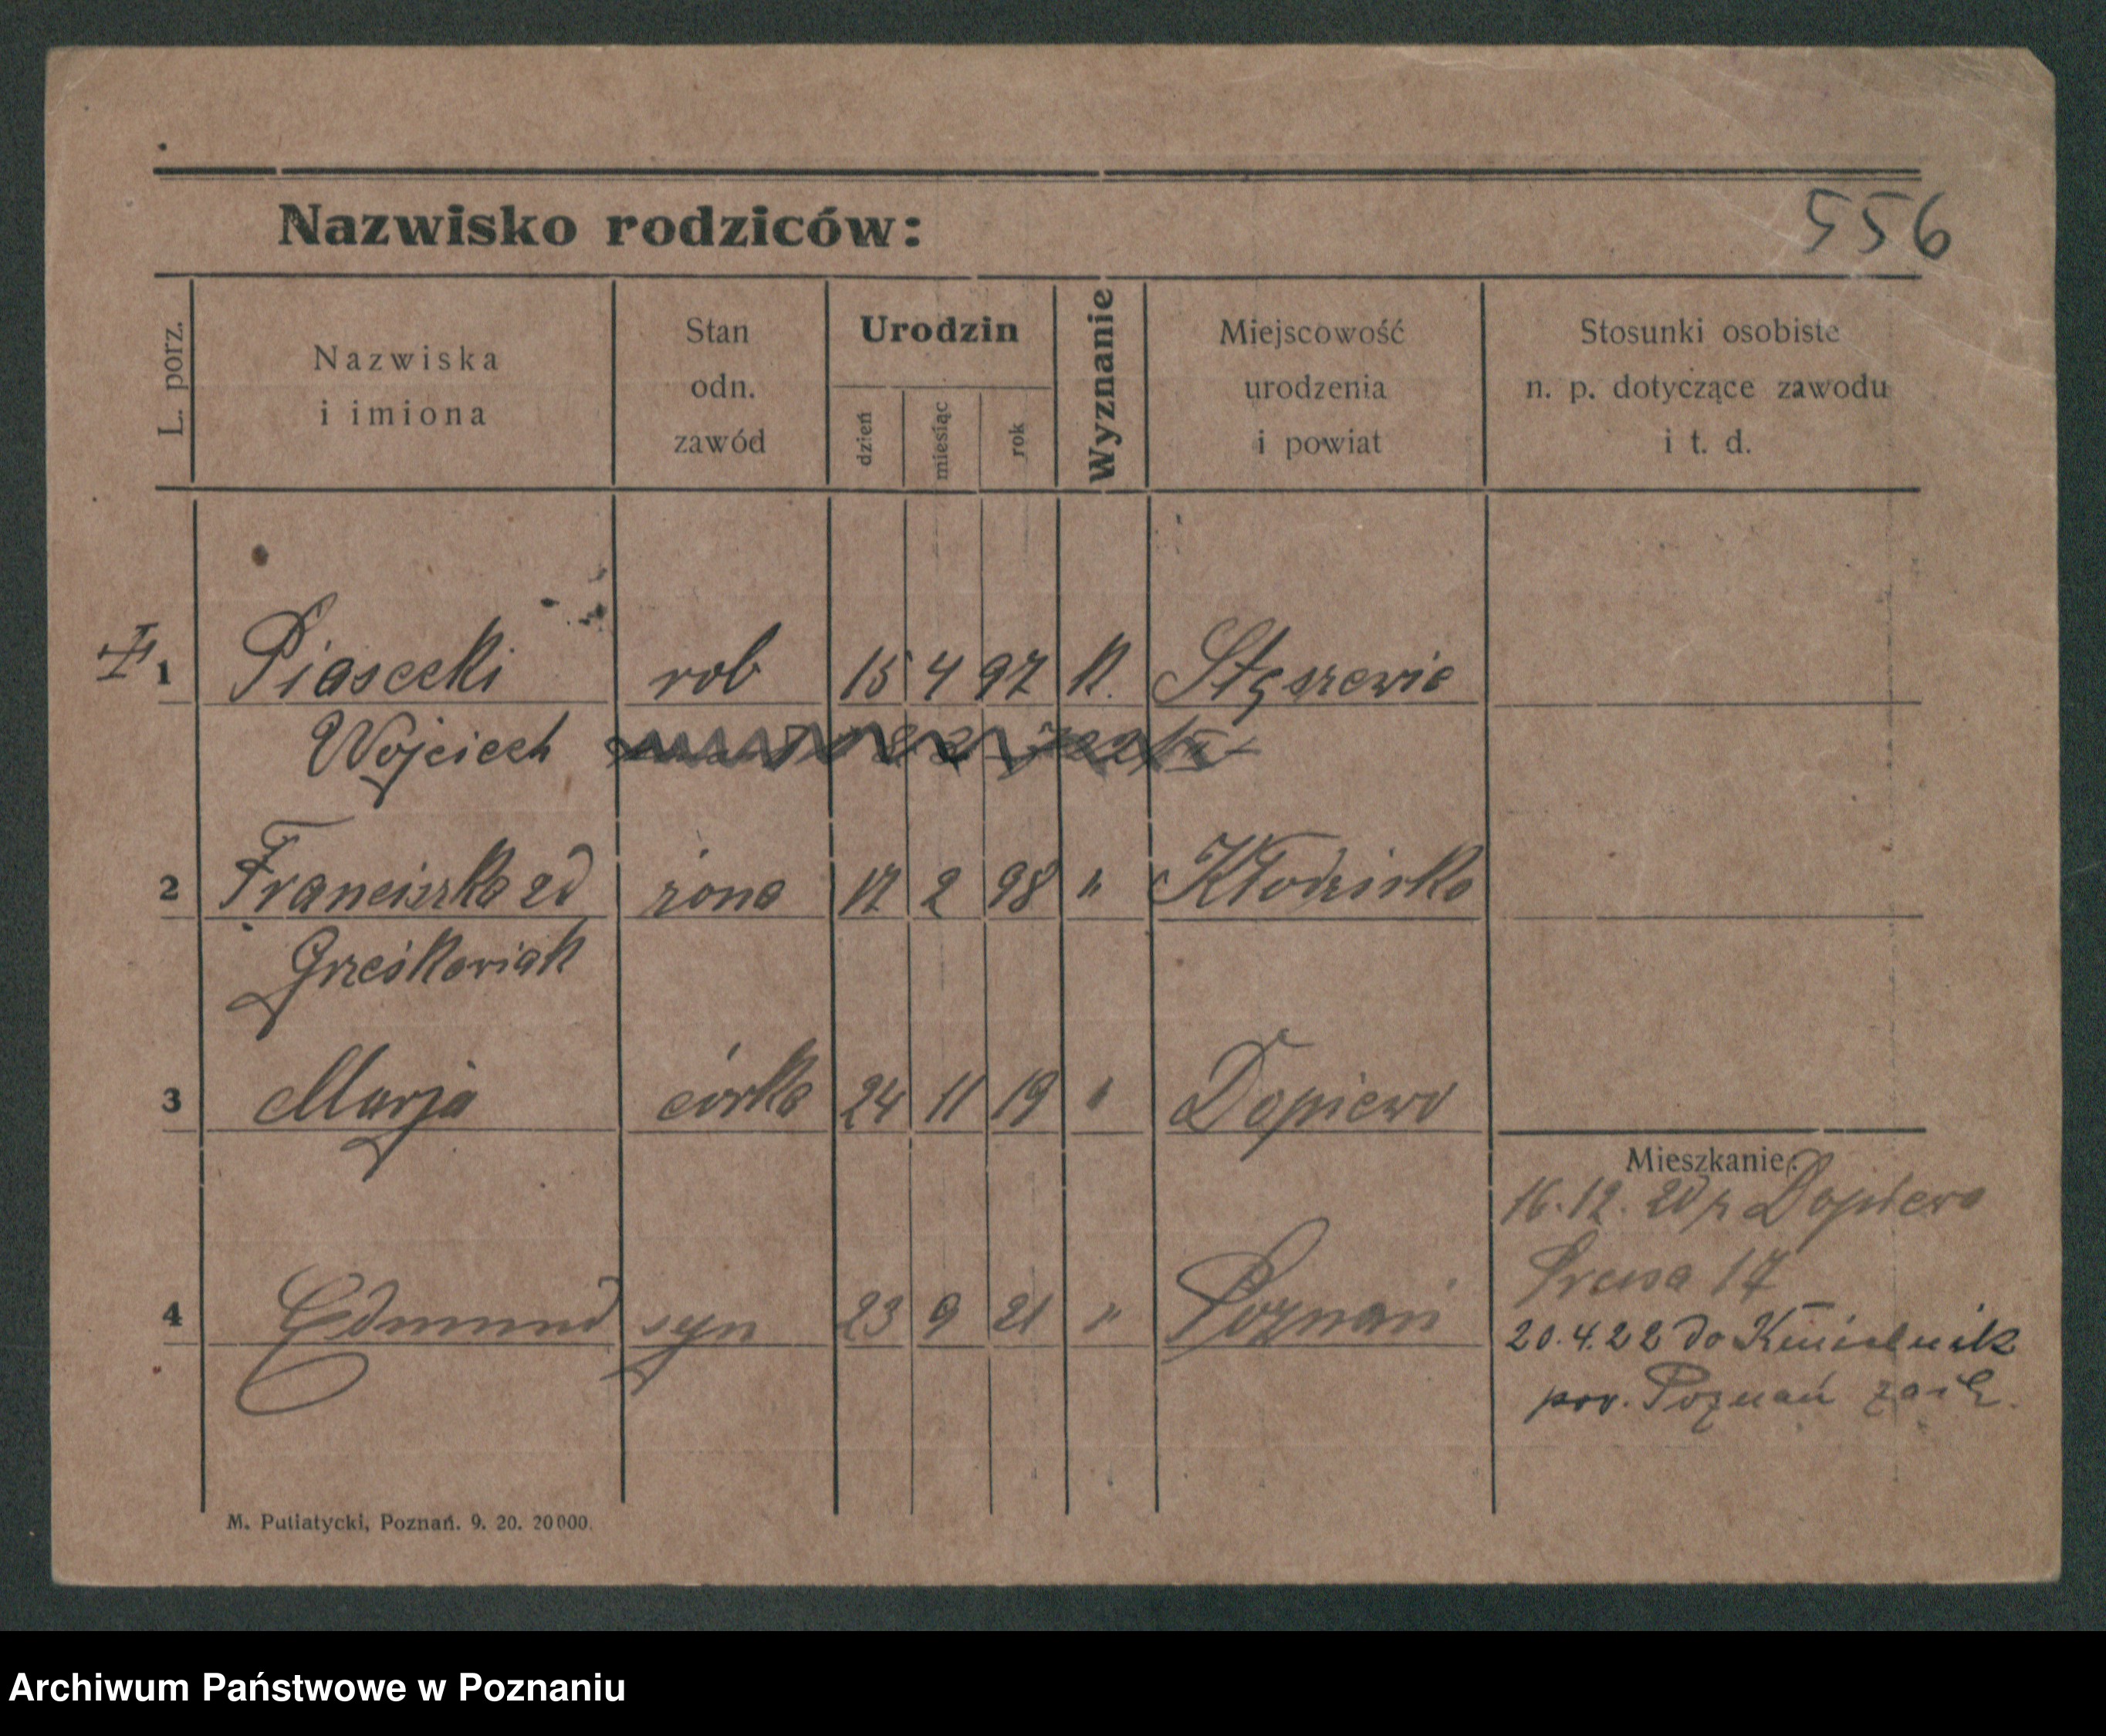 Nazwisko rodziców:
556
L. porz.
Nazwiska
i imiona
Stan
odn.
zawód
Urodzin
dzień
miesiąc
rok
Wyznanie
Miejscowość
urodzenia
i powiat
Stosunki osobiste
n. p. dotyczące zawodu
i t. d.
1 Piasecki rob 15 4 97 K. Stęszewie
Wojciech
2 Franciszka zd żona 17 2 98 " Kłodzisko
Grześkowiak
3 Marja córka 24 11 19 " Dopiewo
Mieszkanie:
16.12. 20 p Dopiewo
4 Edmund syn 23 9 21 " Poznań
Prusa 17
20.4.22 do
pow. Poznań zach.
M. Putiatycki, Poznań. 9. 20. 20000.
Archiwum Państwowe w Poznaniu